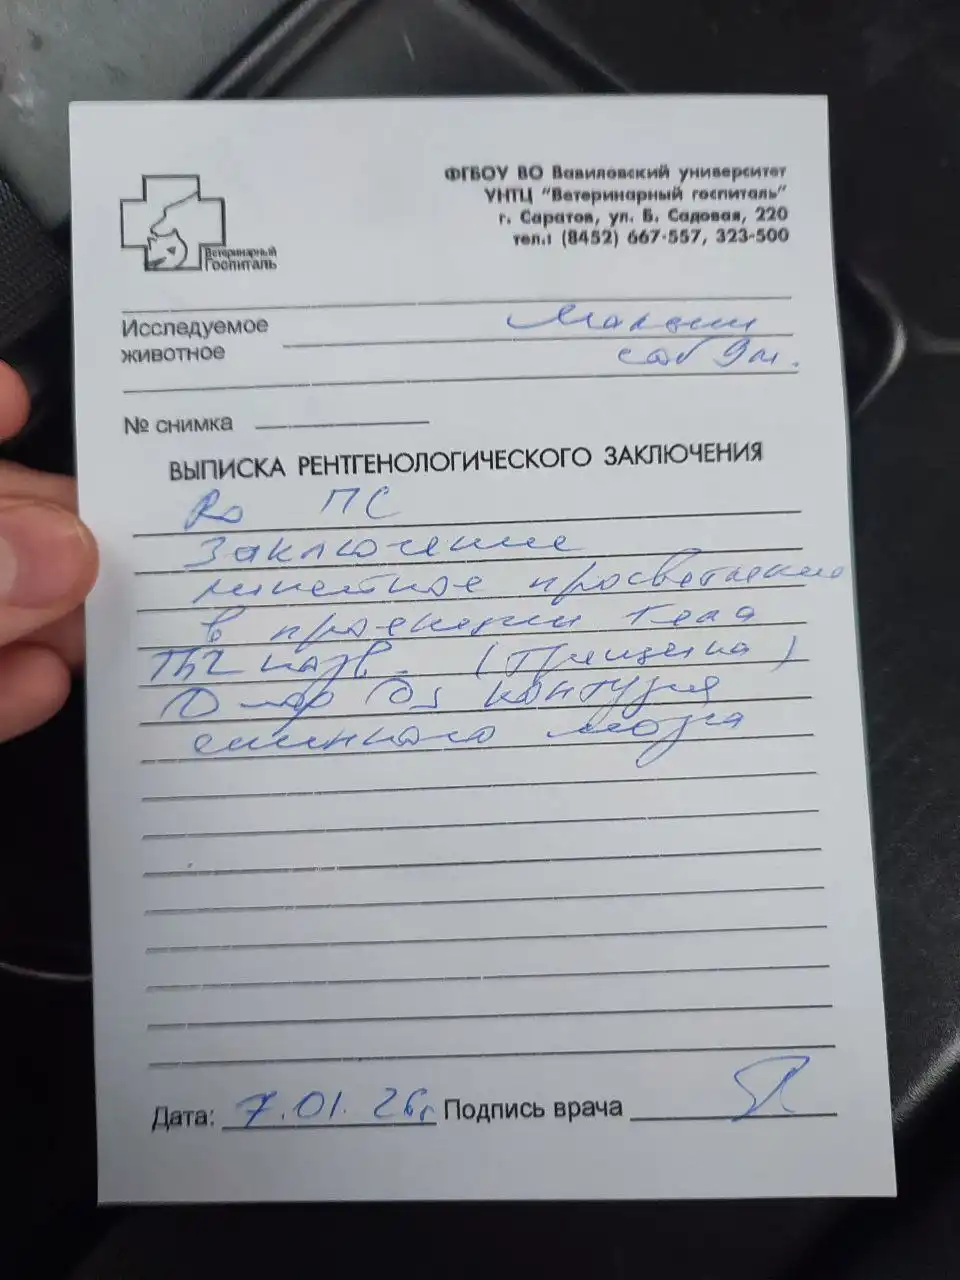 ФГБОУ ВО Вавиловский университет
УНТЦ "Ветеринарный госпиталь"
г. Саратов, ул. Б. Садовая, 220
тел.: (8452) 667-557, 323-500
Ветеринарный
Госпиталь
Исследуемое
животное
соб 9 м.
№ снимка
ВЫПИСКА РЕНТГЕНОЛОГИЧЕСКОГО ЗАКЛЮЧЕНИЯ
Ro ПС
Заключение
линейное просветление
в проекции тела
Th2 позв. (Трещина)
контузия
спинного мозга
Дата: 7.01.26г Подпись врача